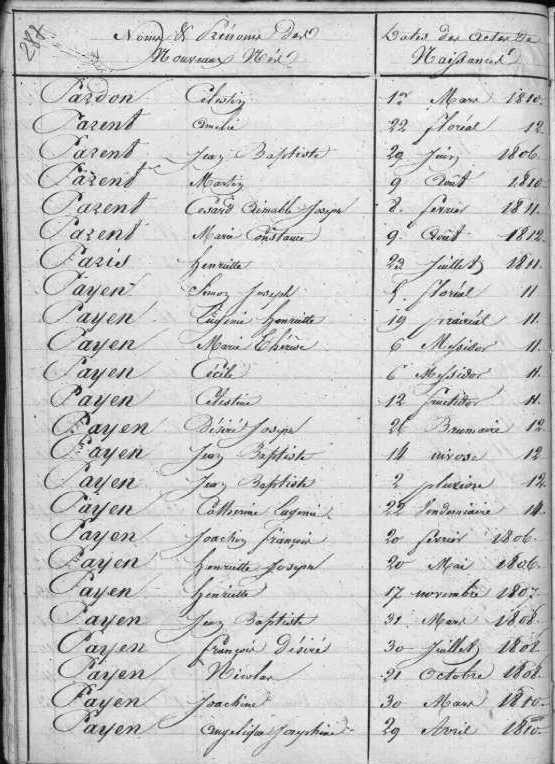 287
Noms & Prénoms des Dates des Actes de
Nouveaux Nés Naissances
Pardon Célestin 1er Mars 1810.
Parent Amélie 22 floréal 12.
Parent Jean Baptiste 29 Juin 1806.
Parent Martin 9 Août 1810
Parent Césard Aimable Joseph 8. fevrier 1811.
Parent Marie Constance 9. Août 1812.
Paris henriette 23 Juillet 1811.
Payen Simon Joseph floréal 11.
Payen Eugénie henriette 19 prairéal 11.
Payen Marie Thérèse 6 Messidor 11.
Payen Cécile 6 Messidor 11.
Payen Célestine 12 fructidor 11.
Payen Désiré Joseph 26 Brumaire 12
Payen Jean Baptiste 14 nivose 12
Payen Jean Baptiste 2 pluviose 12.
Payen Catherine Eugénie 22 Vendemiaire 14.
Payen Joachim françois 20 fevrier 1806.
Payen henriette Joseph 20 Mai 1806.
Payen henriette 17 novembre 1807.
Payen Jean Baptiste 31 Mars 1808.
Payen françois Désiré 30 Juillet 1808
Payen Nicolas 21 Octobre 1808.
Payen Joachim 30 Mars 1810.
Payen angelique Josephine 29 Avril 1810.